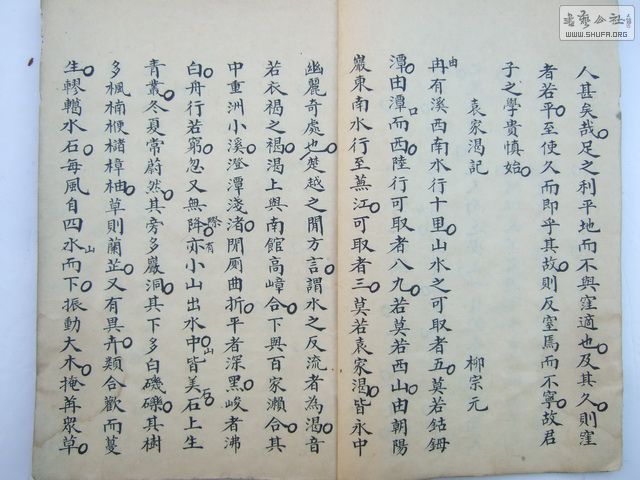 人甚矣哉足之利平地而不與窪適也及其久則窪
者若平至使久而即乎其故則反窒焉而不寧故君
子之學貴慎始
袁家渴記
柳宗元
由冉有溪西南水行十里山水之可取者五莫若鈷鉧
潭由潭口而西陸行可取者八九若莫若西山由朝陽
巖東南水行至蕪江可取者三莫若袁家渴皆永中
幽麗奇處也楚越之閒方言謂水之反流者為渴音
若衣褐之褐渴上與南館高嶂合下與百家瀨合其
中重洲小溪澄潭淺渚閒厠曲折平者深黑峻者沸
白舟行若窮忽又無降際亦有小山出水中山皆美石上生
青叢冬夏常蔚然其旁多巖洞其下多白礫礫其樹
多楓楠梗櫧樟柚草則蘭芷又有異卉類合歡而蔓
生轇轕水石每風自四山水而下振動大木掩苒眾草
書藝公社
WWW.SHUFA.ORG